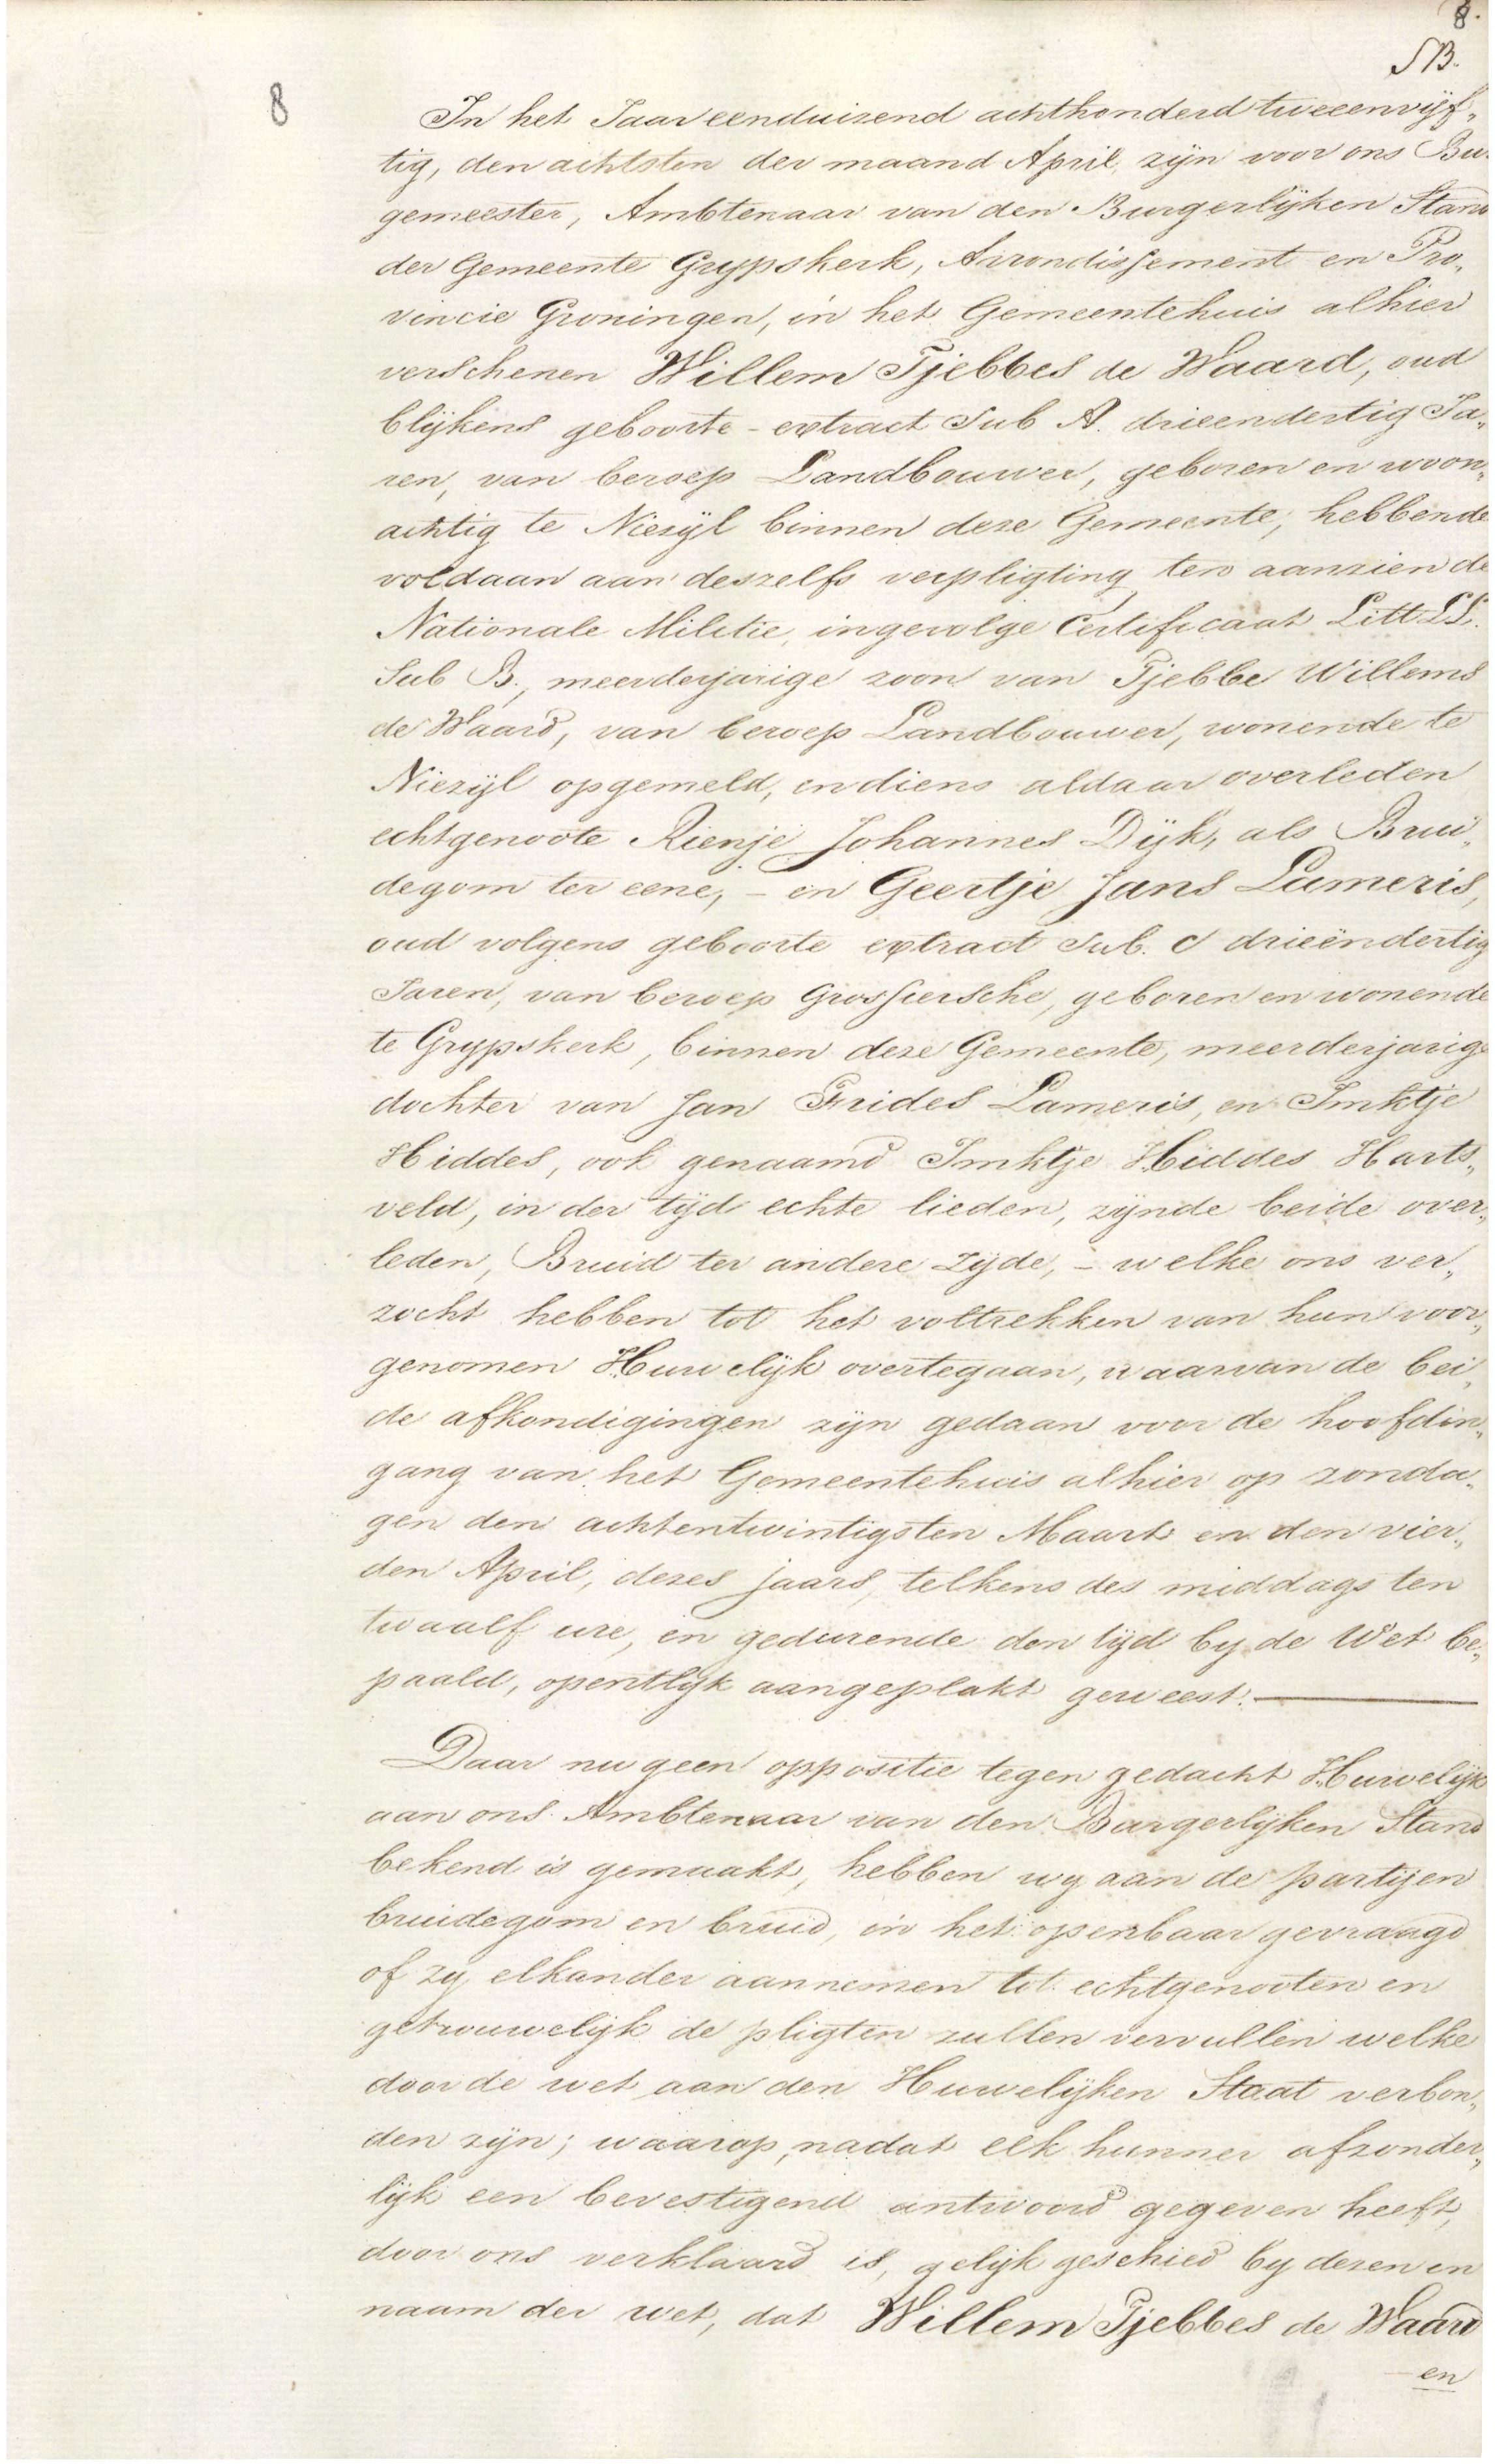 8.
SB.
8
In het Jaar eenduizend achthonderd tweeenvijf„
tig, den achtsten der maand April, zijn voor ons Bur
gemeester, Ambtenaar van den Burgerlijken Stand
der Gemeente Grypskerk, Arrondissement en Pro„
vincie Groningen, in het Gemeentehuis alhier
verschenen Willem Tjebbes de Waard, oud
blijkens geboorte-extract Sub A. drieendertig Ja„
ren, van beroep Landbouwer, geboren en woon„
achtig te Niezijl binnen deze Gemeente, hebbende
voldaan aan deszelfs verpligting ten aanzien de
Nationale Militie, ingevolge Certificaat Litt LL.
Sub B., meerderjarige zoon van Tjebbe Willems
de Waard, van beroep Landbouwer, wonende te
Niezijl opgemeld, en diens aldaar overleden
echtgenoote Rienje Johannes Dijk, als Brui„
degom ter eene, – en Geertje Jans Lameris,
oud volgens geboorte extract Sub. C drieëndertig
Jaren, van beroep Grossiersche, geboren en wonende
te Grypskerk, binnen deze Gemeente, meerderjarige
dochter van Jan Frides Lameris, en Imktje
Hiddes, ook genaamd Imktje Hiddes Harts„
veld, in der tijd echte lieden, zijnde beide over„
leden, Bruid ter andere zijde, – welke ons ver„
zocht hebben tot het voltrekken van hun voor„
genomen Huwelijk overtegaan, waarvan de bei„
de afkondigingen zijn gedaan voor de hoofdin„
gang van het Gemeentehuis alhier op zonda„
gen den achtentwintigsten Maart en den vier„
den April, dezes jaars, telkens des middags ten
twaalf ure, en gedurende den tijd by de Wet be„
paald, opentlijk aangeplakt geweest.
Daar nu geen oppositie tegen gedacht Huwelijk
aan ons Ambtenaar van den Burgerlijken Stand
bekend is gemaakt, hebben wy aan de partijen
bruidegom en bruid, in het openbaar gevraagd
of zy elkander aannemen tot echtgenooten en
getrouwelijk de pligten zullen vervullen welke
door de wet aan den Huwelijken Staat verbon„
den zijn; waarop, nadat elk hunner afzonder„
lijk een bevestigend antwoord gegeven heeft,
door ons verklaard is, gelijk geschied by dezen in
naam der wet, dat Willem Tjebbes de Waard
en